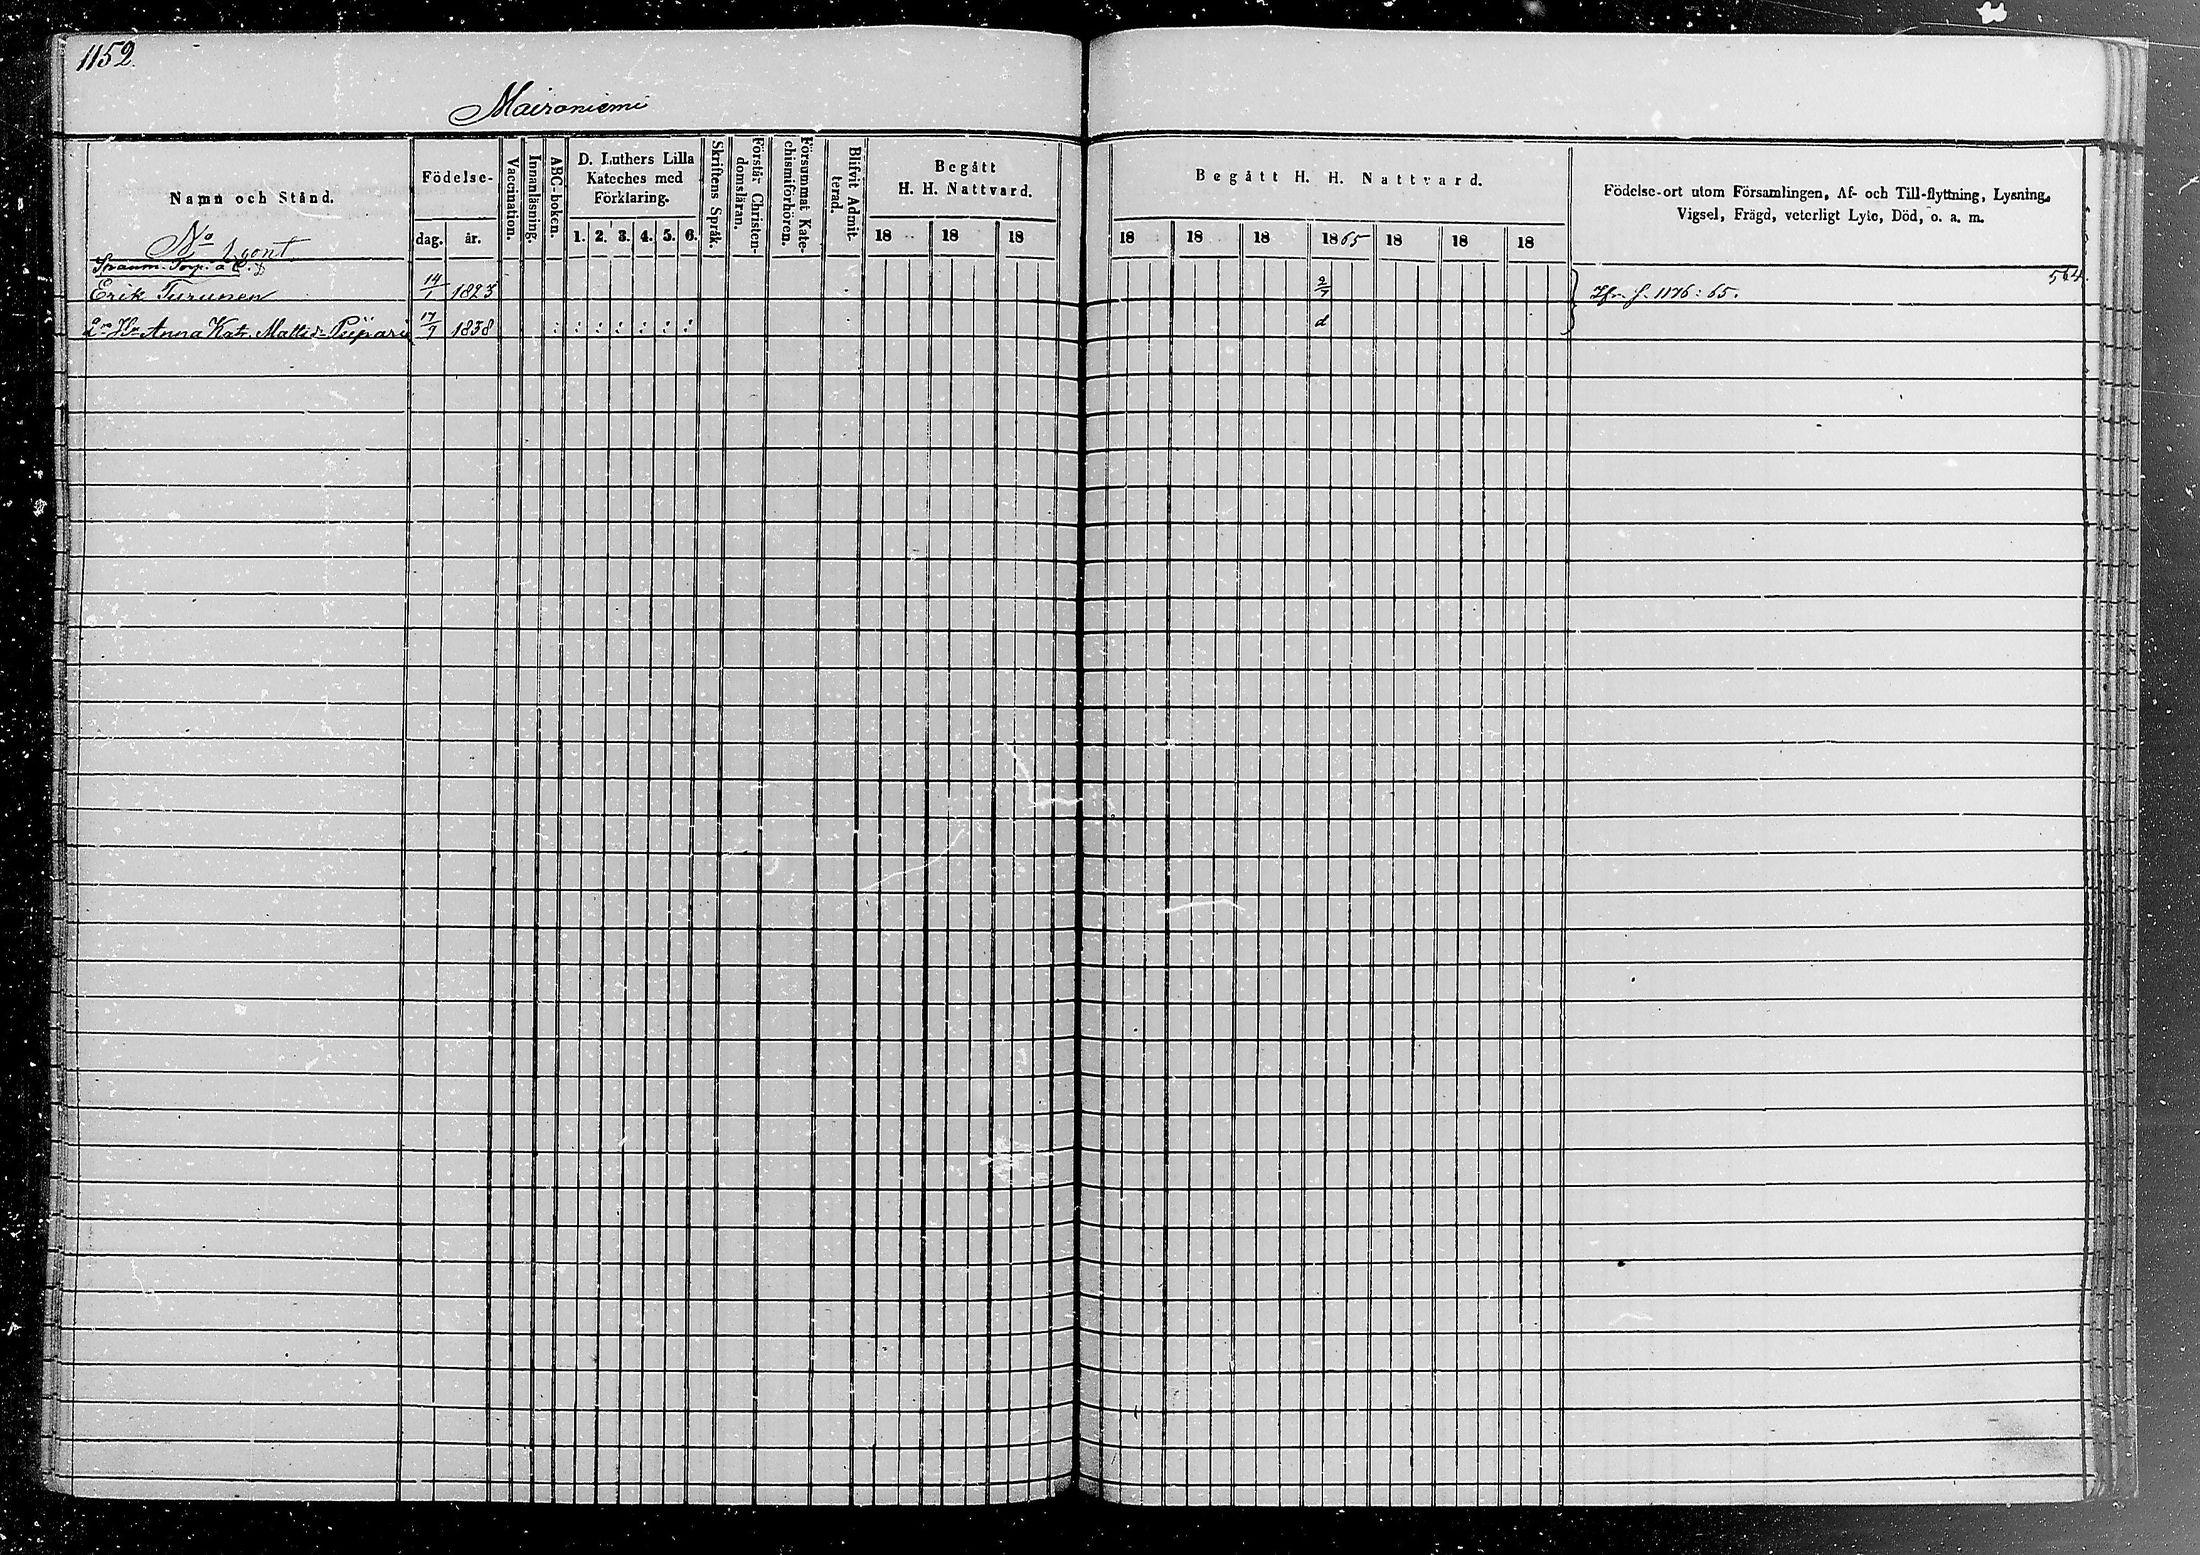 1152.
Maironiemi
Namn och Stånd.
Födelse-
dag. år.
Vaccination.
Innanläsning.
ABC-boken.
D. Luthers Lilla
Kateches med
Förklaring.
1. 2. 3. 4. 5. 6.
Skriftens Språk.
Förstår Christen-
domsläran.
Försummat Kate-
chismiförhören.
Blifvit Admit-
terad.
Begått
H. H. Nattvard.
18 18 18
Begått H. H. Nattvard.
18 18 18 1865 18 18 18
Födelse-ort utom Församlingen, Af- och Till-flyttning, Lysning,
Vigsel, Frägd, veterligt Lyte, Död, o. a. m.
No
Torp. å
564.
Erik Turunen 14/1 1823 2/7 f. 1176: 65.
Anna Kat. Matts d. Piipari 17/9 1838 : : : : : : : d